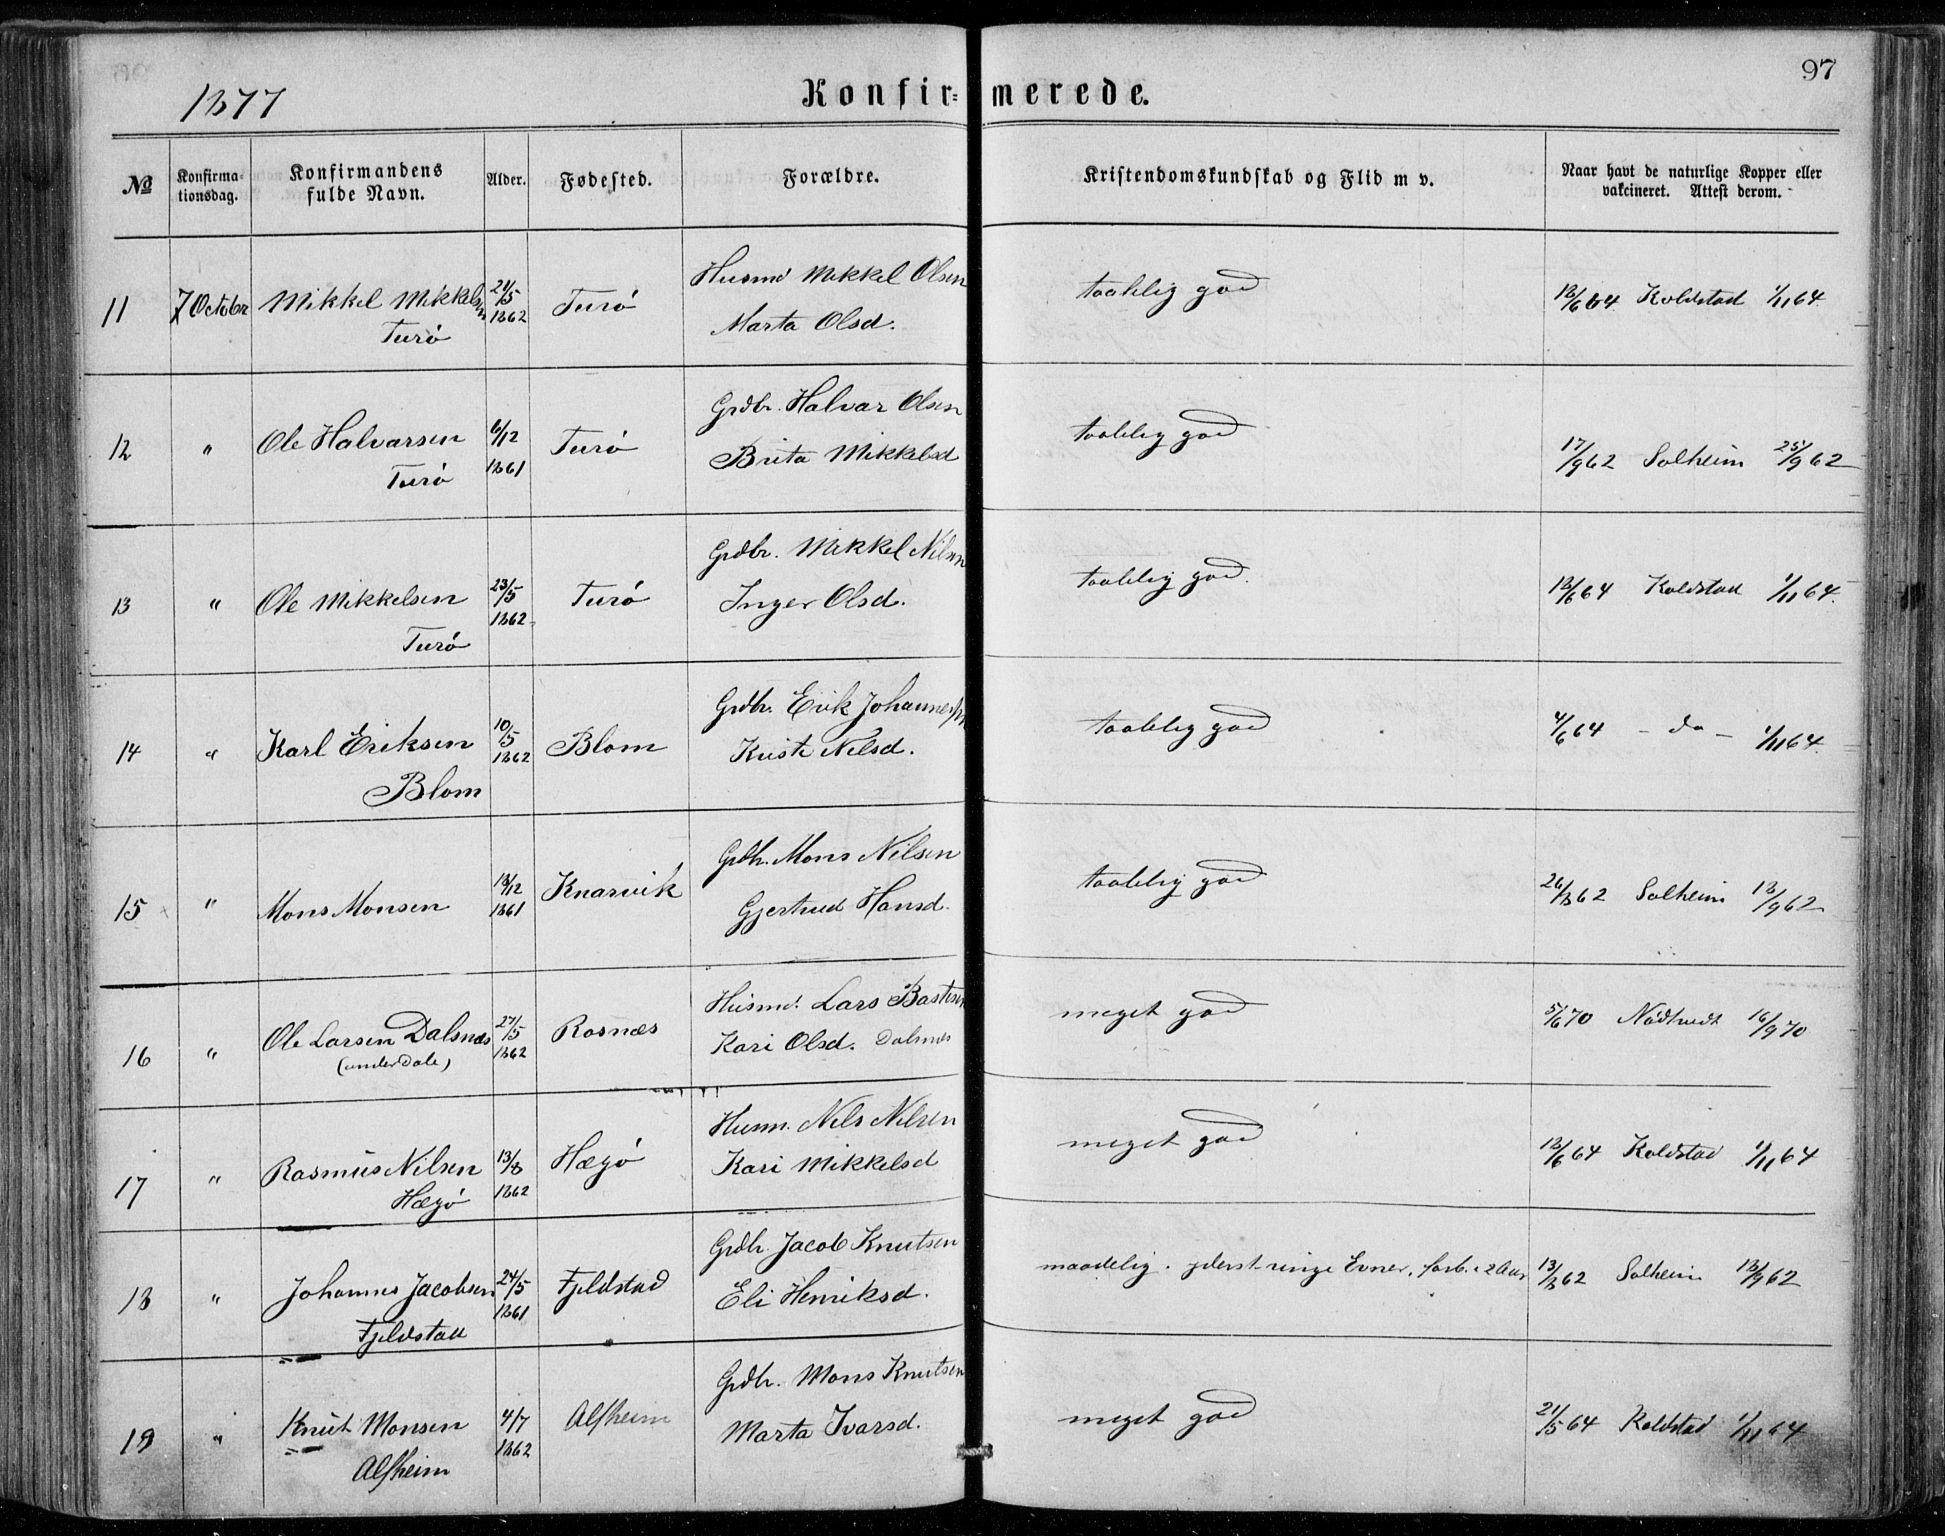 97
1877
Konfir=merede.
No Konfirmationsdag. Konfirmandens fulde Navn. Alder. Fødested. Forældre. Kristendomskundskab og Flid m v. Naar havt de naturlige Kopper eller vakcineret. Attest derom.
11 7 Octobr Mikkel Mikkelsen 21/5 1862 Turö Husmd Mikkel Olsen taalelig god 18/6 64 Koldstad 1/11 64
Turö Marta Olsd.
12 " Ole Halvarsen 6/12 1861 Turö Grdbr. Halvar Olsen taalelig god 17/9 62 Solheim 25/9 62
Turö Brita Mikkelsd
13 " Ole Mikkelsen 23/5 1862 Turö Grdbr. Mikkel Nilsen taalelig god. 18/6 64 Koldstad 1/11 64.
Turö Inger Olsd.
14 " Karl Eriksen 10/5 1862 Blom Grdbr. Erik Johannessen taalelig god 4/6 64 - do - 1/11 64.
Blom Kristi Nilsd.
15 " Mons Monsen 18/12 1861 Knarvik Grdb. Mons Nilsen taalelig god 26/8 62 Solheim 18/9 62
Gjertrud Hansd.
16 " Ole Larsen Dalsnæs 27/5 1862 Rosnæs Husmd. Lars Bastesen meget god 5/6 70 Nödtvedt 16/9 70
(under Dale) Kari Olsd. Dalsnæs
17 " Rasmus Nilsen 13/8 1862 Hægö Husm. Nils Nilsen meget god 18/6 64 Koldstad 1/11 64
Hægö Kari Mikkelsd
18 " Johannes Jacobsen 24/5 1861 Fjeldstad Grdb. Jacob Knutsen maadelig. yderst ringe Evner, forb. i 2 Aar 13/8 62 Solheim 18/9 62
Fjeldstad Eli Henriksd.
19 " Knut Monsen 4/7 1862 Alfheim Grdb. Mons Knutsen meget god 21/5 64 Koldstad 1/11 64
Alfheim Marta Ivarsd.